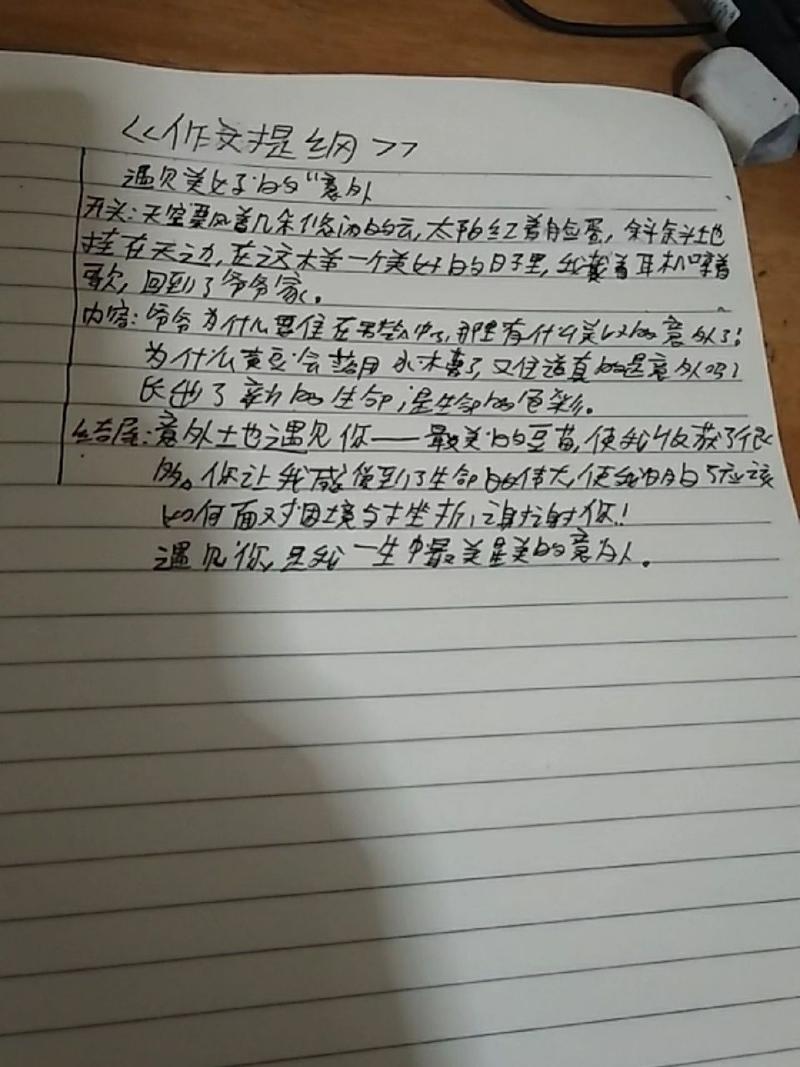 <<作文提纲>>
遇见美好的"意外
开头:天空飘着几朵悠闲的云,太阳红着脸蛋,斜斜地
挂在天边,在这样一个美好的日子里,我戴着耳机哼着
歌,回到了爷爷家。
内容:爷爷为什么要住在 中,那里有什么美好的意外了;
为什么黄豆会 水 了,又 道真的是意外吗?
长出了新的生命,是生命的色彩。
结尾:意外地遇见你——最美的豆苗,使我收获了很
多。你让我感觉到了生命的伟大,使我明白了应该
如何面对困境与挫折,谢谢你!
遇见你,是我一生中最美 美的意外。